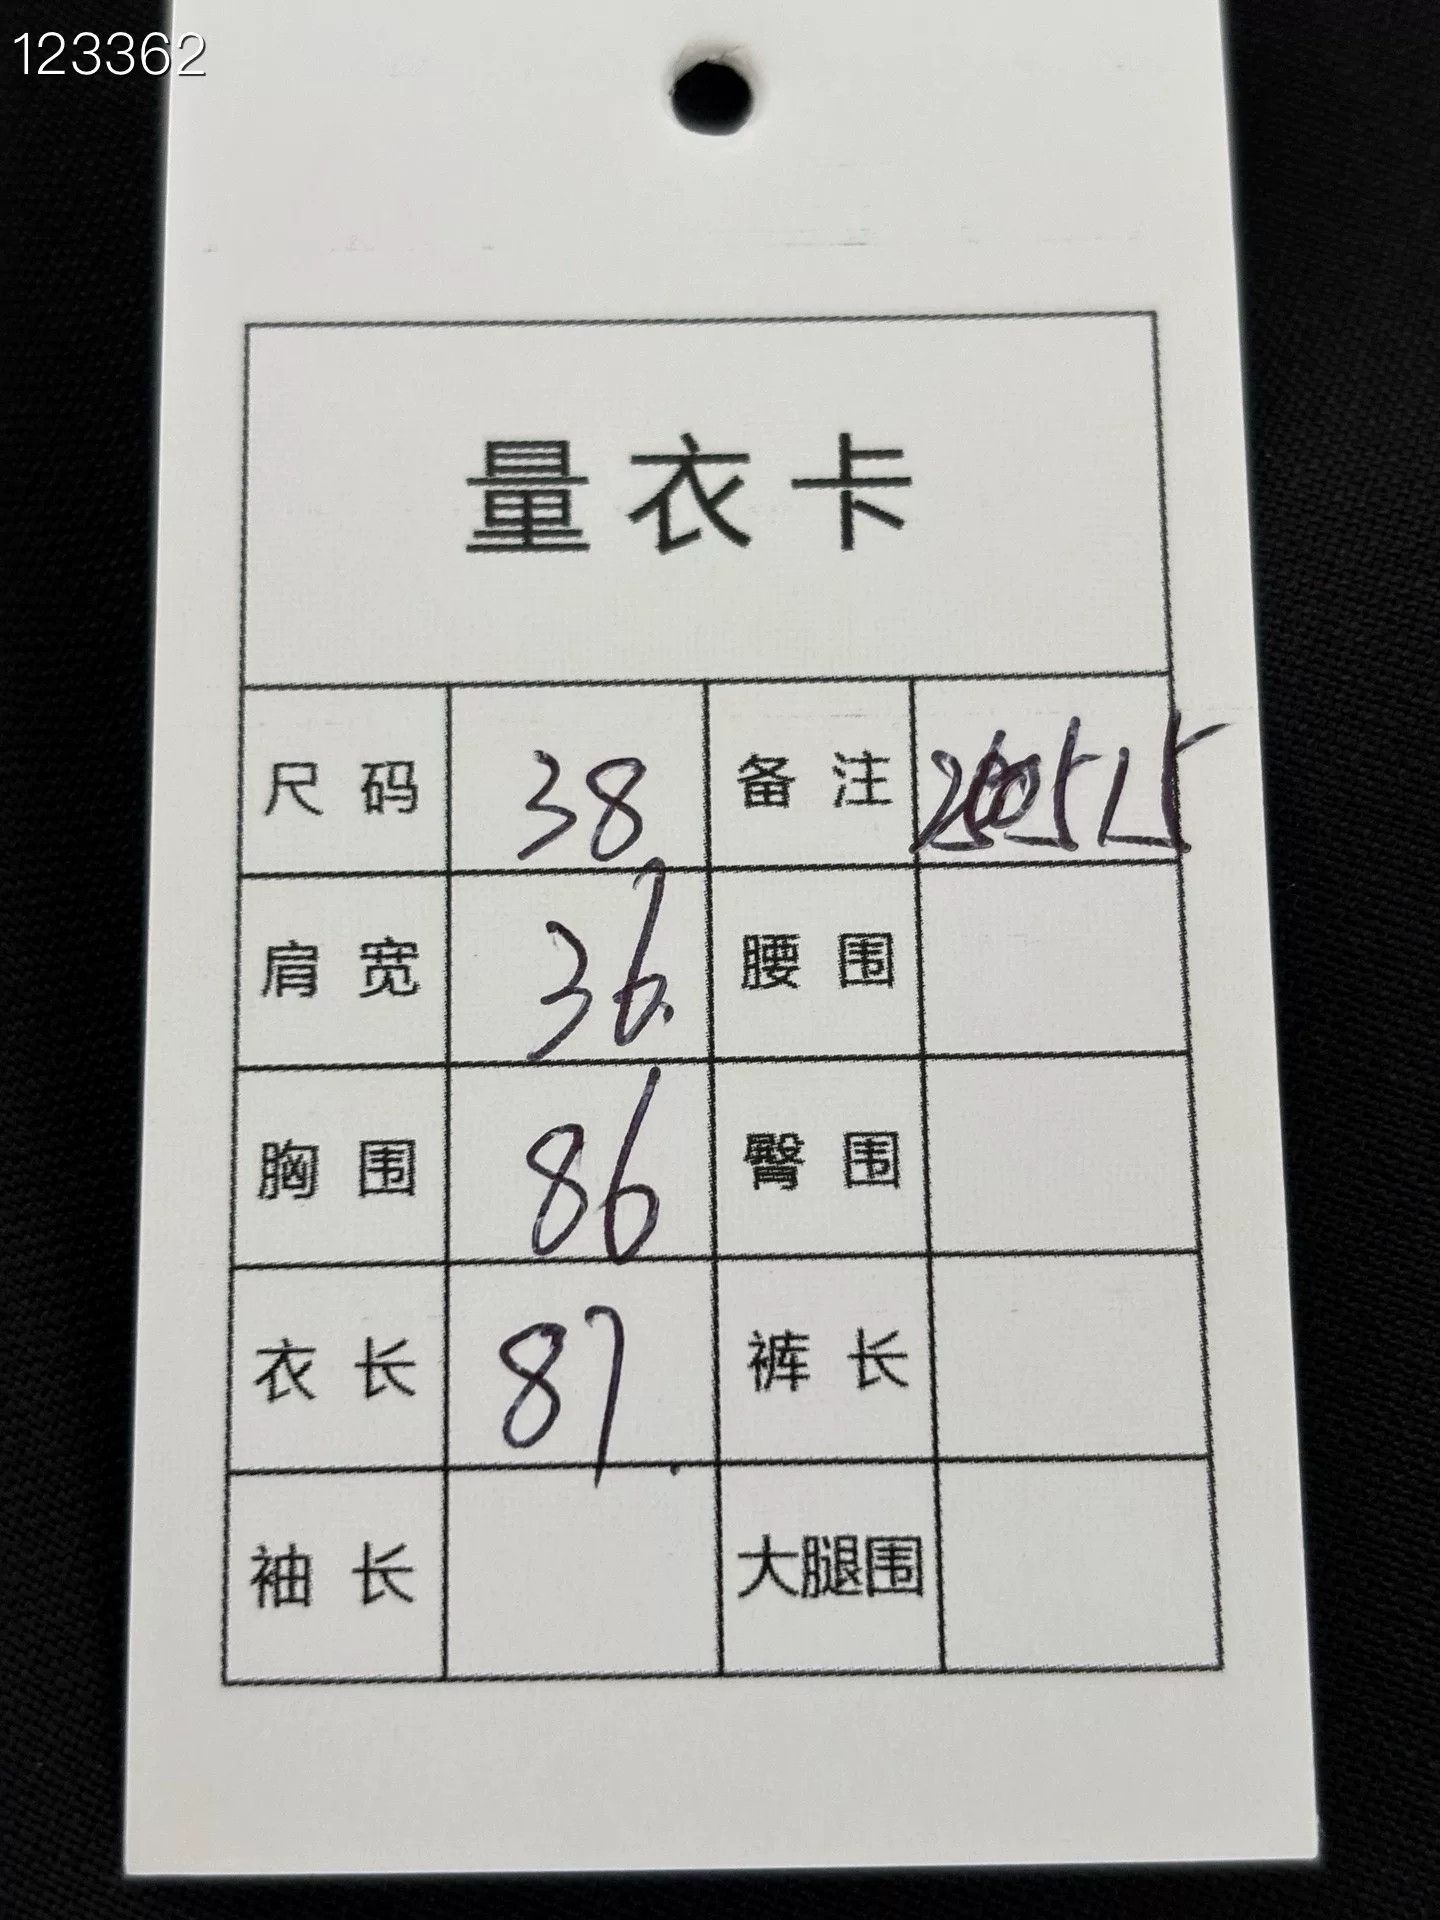 123362
量衣卡
尺码 38 备注
肩宽 36 腰围
胸围 86 臀围
衣长 87 裤长
袖长 大腿围